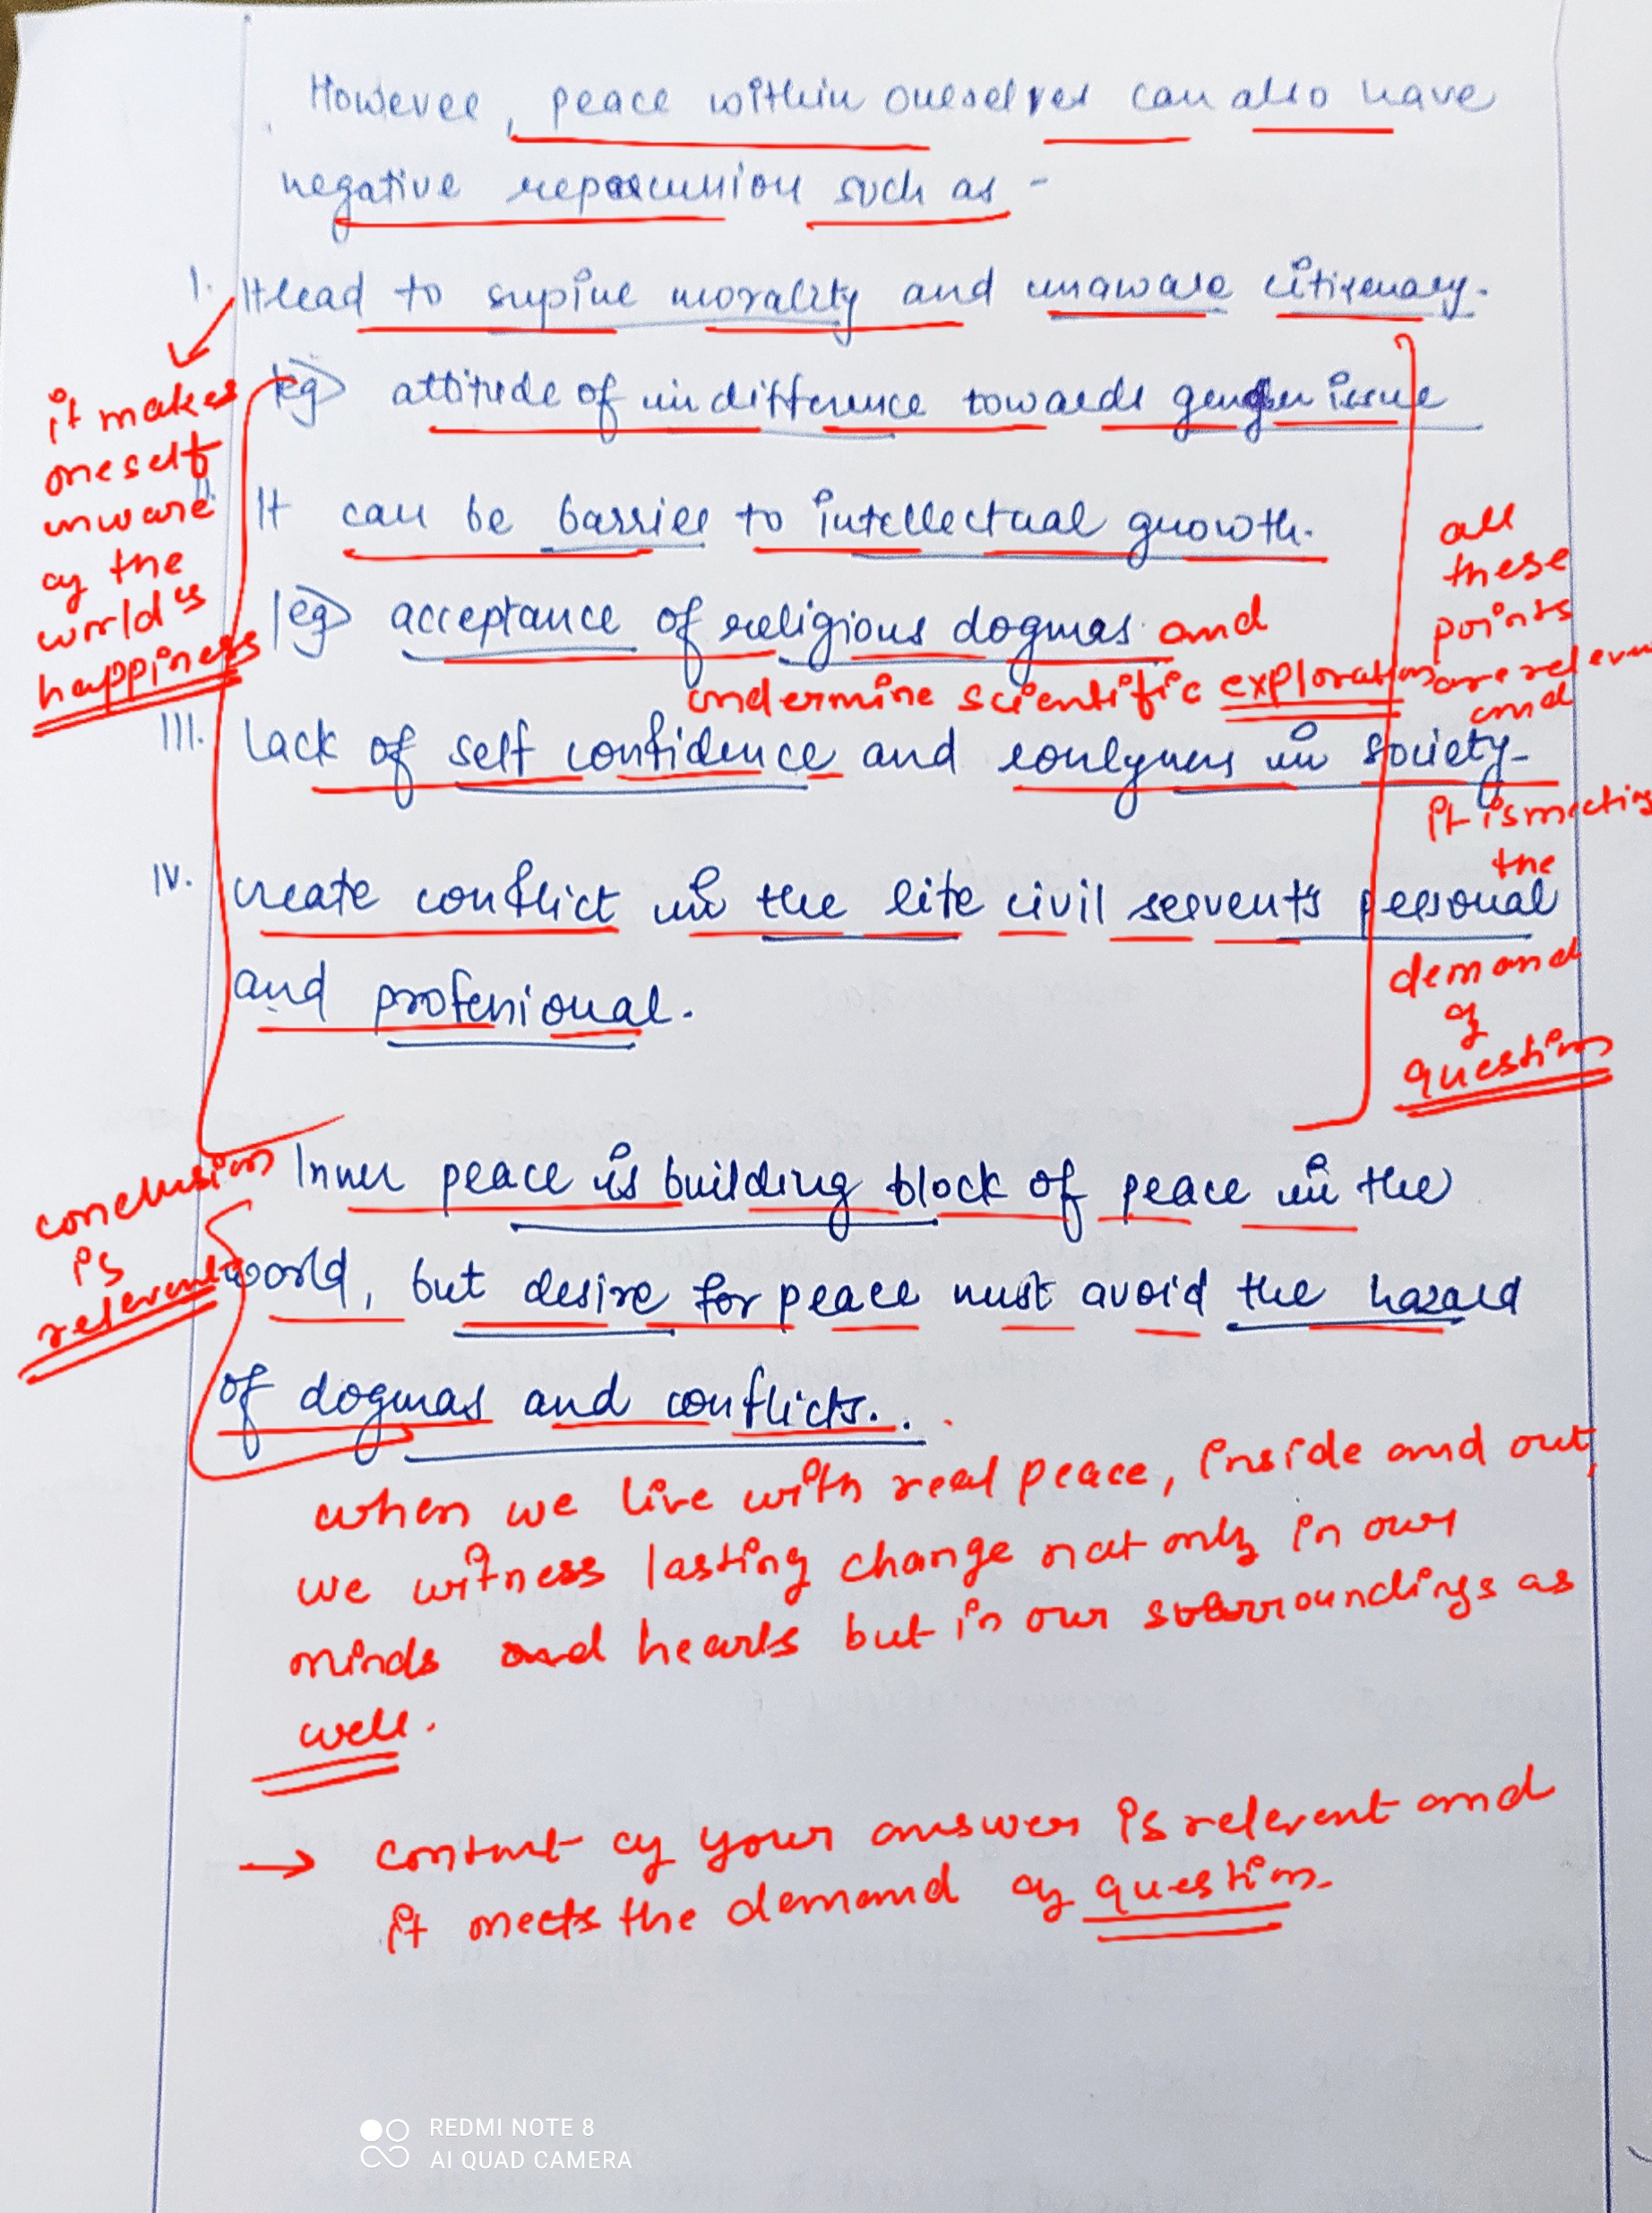 However, peace within ourselves can also have
negative reparcussion such as -
I. It lead to supine morality and unaware citizenary.
it makes
oneself
unware
of the
world's
happiness
eg) attitude of indifference towards gender issue
II. It can be barrier to intellectual growth.
eg) acceptance of religious dogmas and
undermine scientific exploration
all
these
points
are relevent
and
it is meeting
the
demand
of
question
III. lack of self confidence and in society.
IV. create conflict in the life civil servents personal
and professional.
conclusion
is
relevent
Inner peace is building block of peace in the
world, but desire for peace must avoid the hazard
of dogmas and conflicts..
when we live with real peace, inside and out,
we witness lasting change not only in our
minds and hearts but in our surroundings as
well.
→ contnt of your answer is relevent and
it meets the demand of question.
REDMI NOTE 8
AI QUAD CAMERA